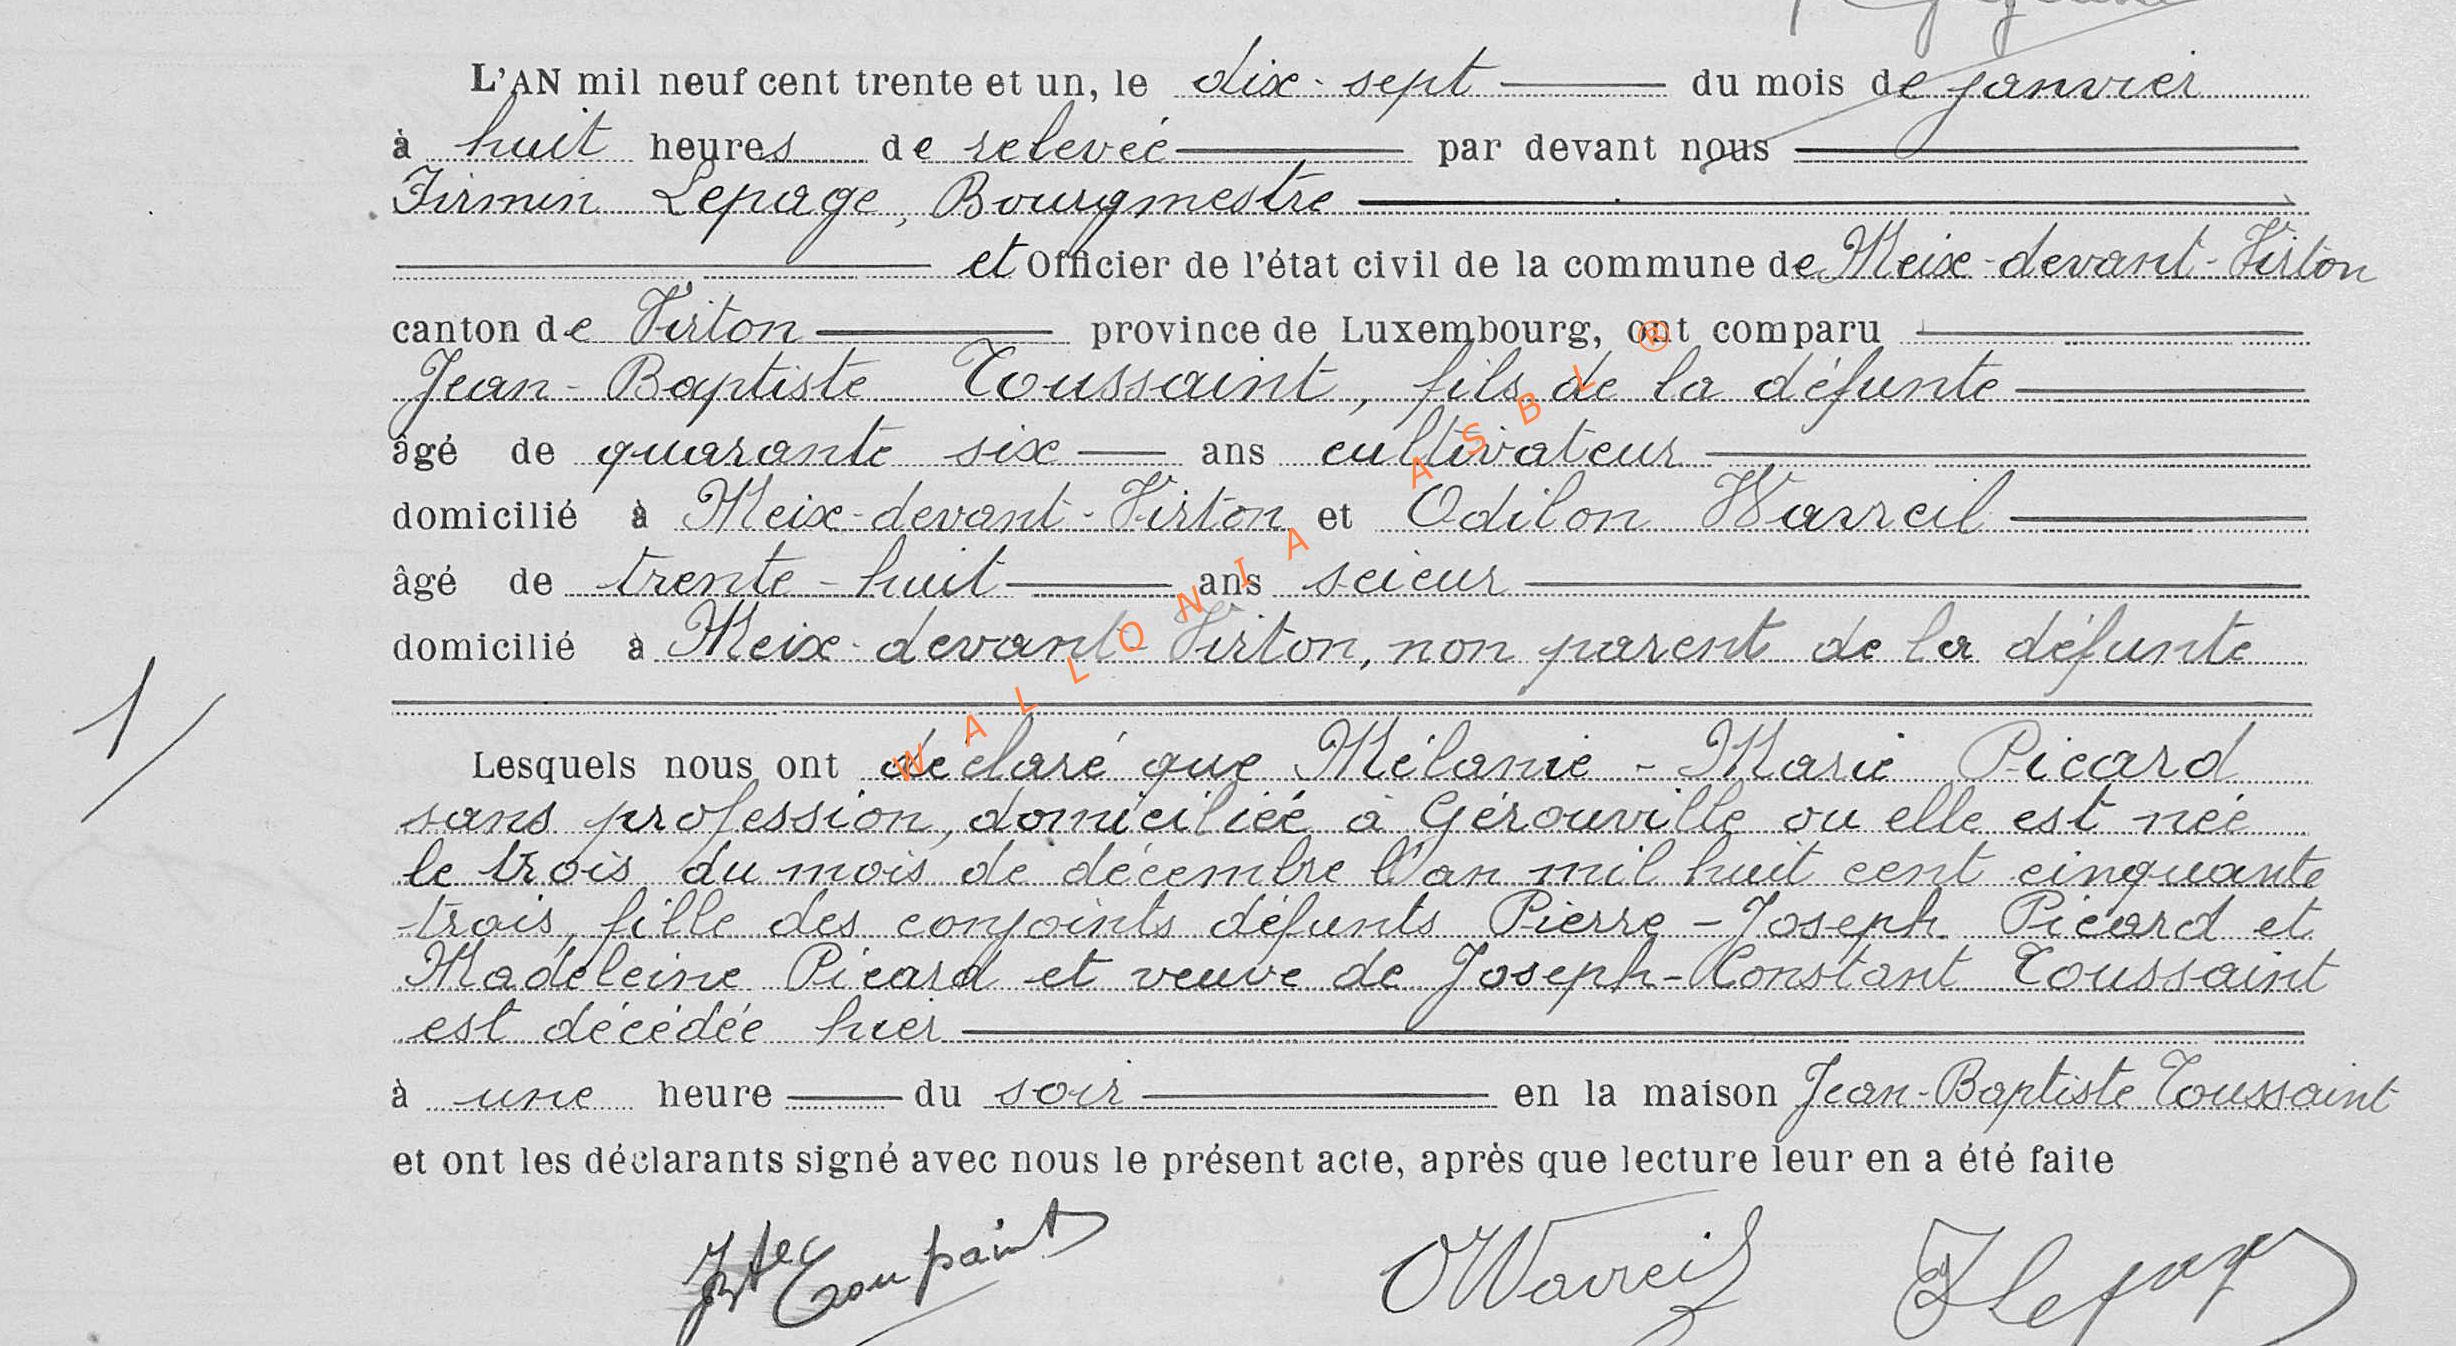 L'AN mil neuf cent trente et un, le dix-sept du mois de janvier
à huit heures de relevée par devant nous
Firmin Lepage, Bourgmestre
et Officier de l'état civil de la commune de Meix-devant-Virton
canton de Virton province de Luxembourg, ont comparu
Jean-Baptiste Toussaint, fils de la défunte
âgé de quarante six ans cultivateur
domicilié à Meix-devant-Virton et Odilon Wavreil
âgé de trente-huit ans scieur
domicilié à Meix-devant-Virton, non parent de la défunte
1/
Lesquels nous ont déclaré que Mélanie-Marie Picard
sans profession, domiciliée à Gérouville ou elle est née
le trois du mois de décembre l'an mil huit cent cinquante
trois, fille des conjoints défunts Pierre-Joseph Picard et
Madeleine Picard et veuve de Joseph-Constant Toussaint
est décédée hier
à une heure du soir en la maison Jean-Baptiste Toussaint
et ont les déclarants signé avec nous le présent acte, après que lecture leur en a été faite
JBte Toussaint OWavreil FLepage
WALLONIA ASBL ®